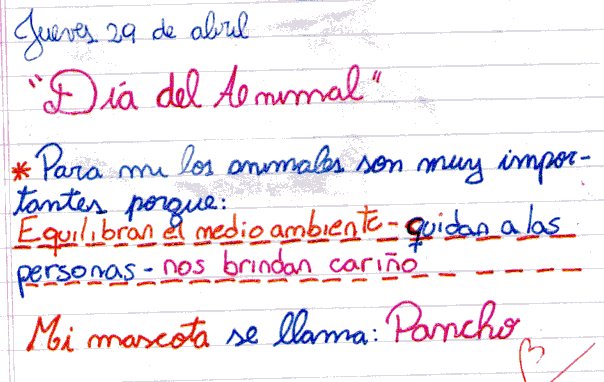 Jueves 29 de abril
"Día del Animal"
* Para mi los animales son muy impor-
tantes porque:
Equilibran el medio ambiente - quidan a las
personas - nos brindan cariño
Mi mascota se llama: Pancho